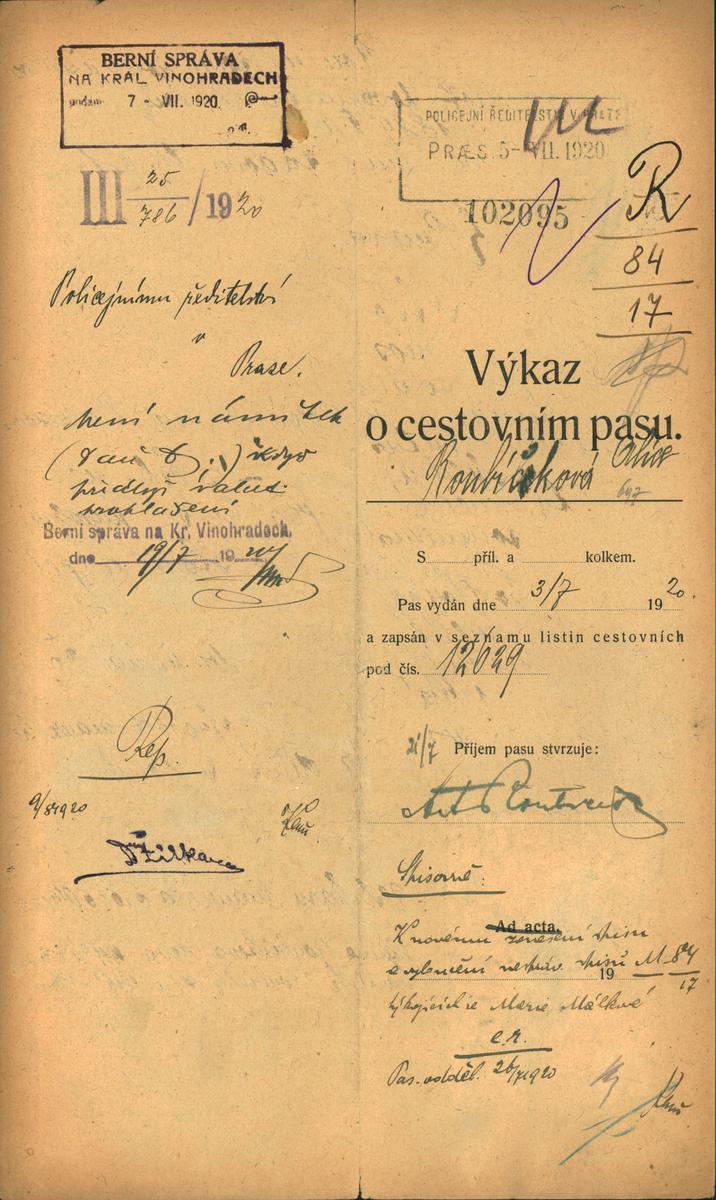 BERNÍ SPRÁVA
NA KRÁL VINOHRADECH
podán 7 - VII. 1920.
III 25/786 / 1920
Policejnímu ředitelství
v
Praze.
není námitek
když
prohlášení
Berní správa na Kr. Vinohradech,
dne 19/7 1920
Rep.
9/8 1920
POLICEJNÍ ŘEDITELSTVÍ V PRAZE
PRÆS. 5-VII. 1920
102095
R
84
17
Výkaz
o cestovním pasu.
Roubíčková Alice
S příl. a kolkem.
Pas vydán dne 3/7 1920.
a zapsán v seznamu listin cestovních
pod čís. 12029
21/7 Příjem pasu stvrzuje:
Spisovně:
Ad acta.
K novému spisu
a vyloučení spisů M 84
19 17
týkajících se Marie Málkové
Pas. odděl. 26/7 1920